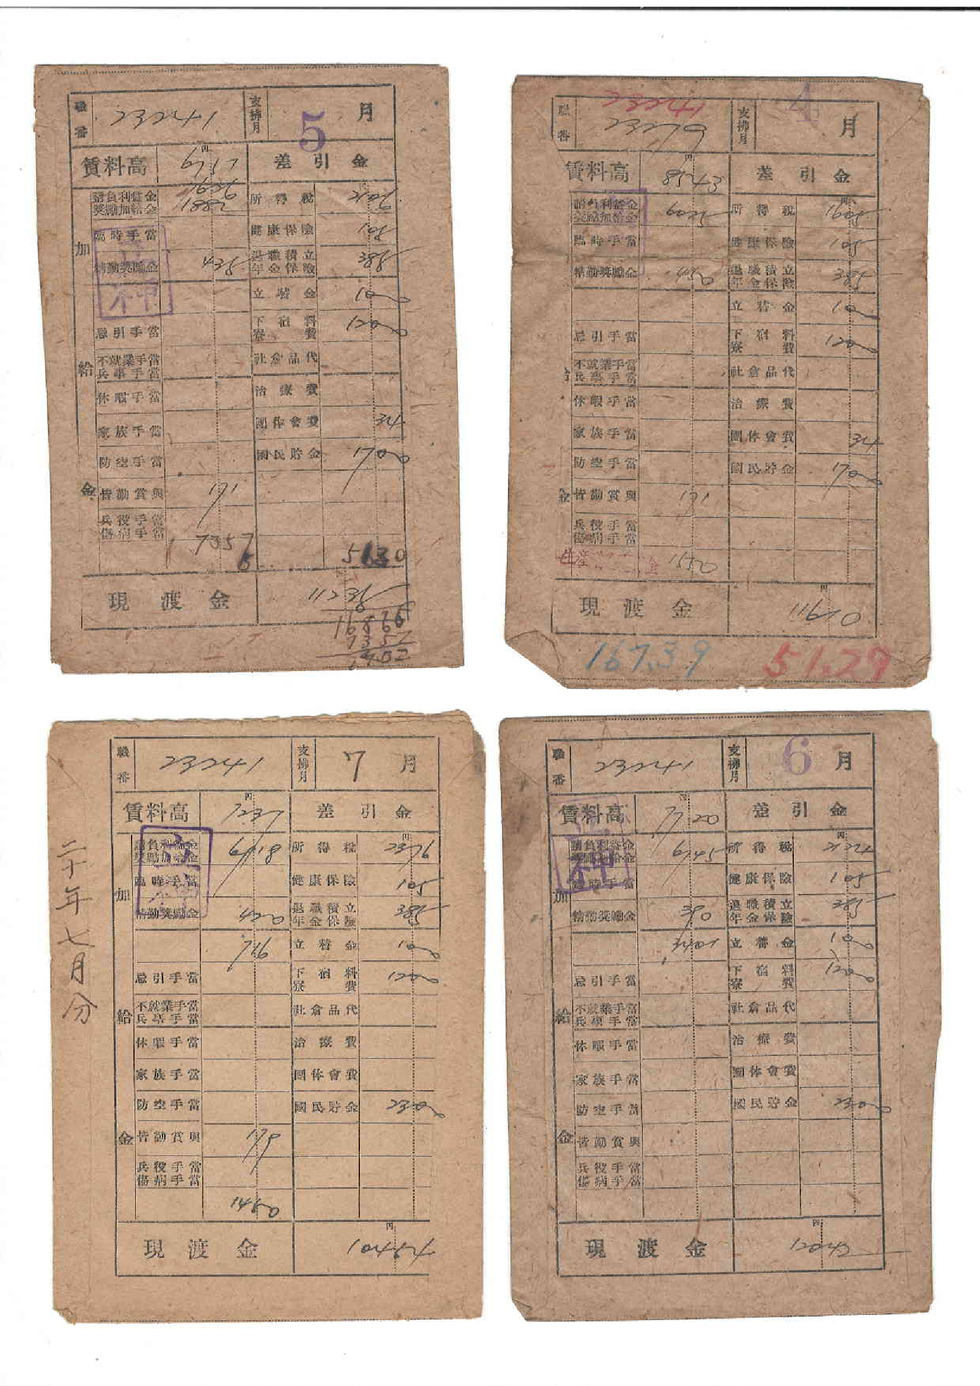 職番 23241 支拂月 5 月
賃料高 差引金
請負利益金
奬勵加給金 1882 所得税
臨時手當 健康保險 105
精勤奬勵金 435 退職積立
年金保險 385
立替金 1000
忌引手當 下宿料
寮費 1200
不就業手當
兵事手當 社倉品代
休暇手當 治療費
家族手當 團体會費 34
防空手當 國民貯金 1700
皆勤賞與 171
兵役手當
傷病手當
加給金
7357 5130
現渡金 11236
職番 支拂月 4 月
賃料高 8543 差引金
請負利益金
奬勵加給金 6025 所得税 1605
臨時手當 健康保險 105
精勤奬勵金 450 退職積立
年金保險 385
立替金 1000
忌引手當 下宿料
寮費 1200
不就業手當
兵事手當 社倉品代
休暇手當 治療費
家族手當 團体會費 34
防空手當 國民貯金 1700
皆勤賞與 171
兵役手當
傷病手當
1550
現渡金 11610
167.39 51.29
職番 23241 支拂月 7 月
賃料高 7237 差引金
請負利益金
奬勵加給金 6918 所得税 2376
臨時手當 健康保險 105
精勤奬勵金 420 退職積立
年金保險 385
716 立替金 1000
忌引手當 下宿料
寮費 1200
不就業手當
兵事手當 社倉品代
休暇手當 治療費
家族手當 團体會費
防空手當 國民貯金 2300
皆勤賞與 179
兵役手當
傷病手當
加給金
1450
現渡金 10454
二十年七月分
職番 23241 支拂月 6 月
賃料高 7720 差引金
請負利益金
奬勵加給金 6145 所得税
臨時手當 健康保險 105
精勤奬勵金 390 退職積立
年金保險 385
立替金 1000
忌引手當 下宿料
寮費 1200
不就業手當
兵事手當 社倉品代
休暇手當 治療費
家族手當 團体會費
防空手當 國民貯金 2300
皆勤賞與
兵役手當
傷病手當
加給金
現渡金 12042